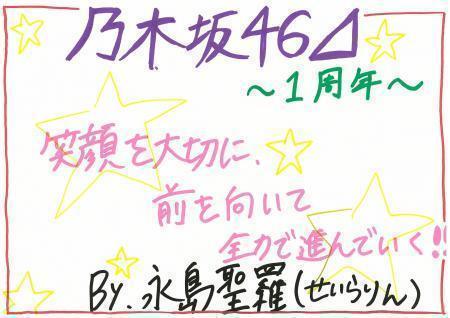 乃木坂46⊿
～1周年～
笑顔を大切に、
前を向いて
全力で進んでいく!!
By.永島聖羅(せいらりん)